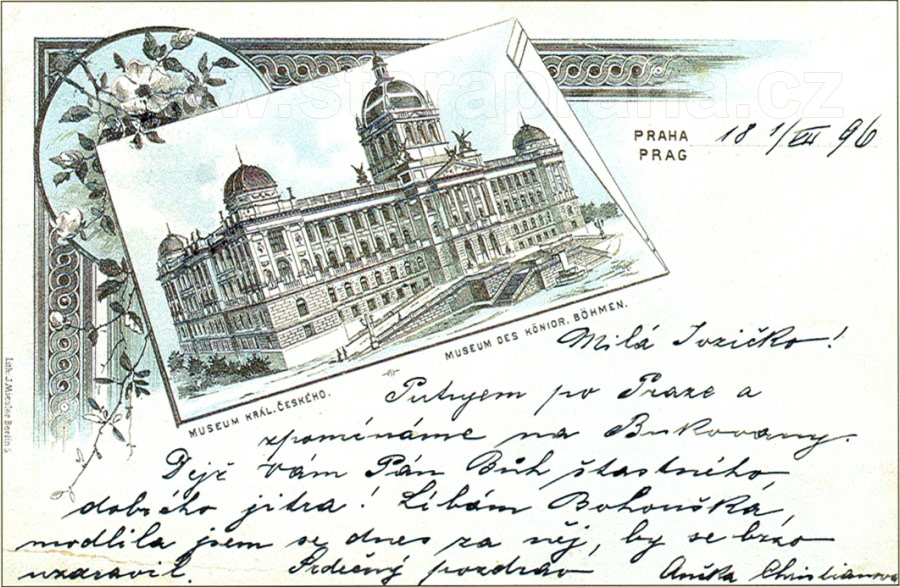 www.starapraha.cz
PRAHA 18 1/VII 96
PRAG
MUSEUM KRÁL. ČESKÉHO.
MUSEUM DES KÖNIGR. BÖHMEN.
Milá Jozičko!
Putujem po Praze a
zpomínáme na Bukovany.
Dejž Vám Pán Bůh šťastného,
dobrého jitra! Líbám Bohouška,
modlila jsem se dnes za něj, by se brzo
uzdravil. Srdečný pozdrav Anička Christianova
Lith. J. Miesler Berlin S